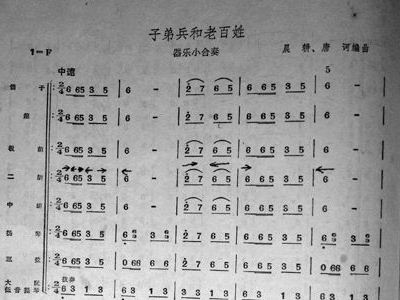 子弟兵和老百姓
1=F 器乐小合奏 晨耕、唐诃编曲
中速 5
笛子 2/4 6 65 3 5 6 - 2 7 6 5 6 6 5 3 5 6 -
笙 2/4 6 65 3 5 6 - 2 7 6 5 6 6 5 3 5 6 -
板胡 2/4 6 65 3 5 6 - 2 7 6 5 6 6 5 3 5 6 -
二胡 2/4 6 65 3 5 6 - 2 7 6 5 6 6 5 3 5 6 -
中胡 2/4 6 65 3 5 6 - 2 7 6 5 6 6 5 3 5 6 -
扬琴 2/4 6 65 3 5
三弦 2/4 6 65 3 5 0 66 6 6 2 7 6 5 6 6 5 3 5 0 66 6 6
大阮
低音提琴 2/4 6 3 1 3